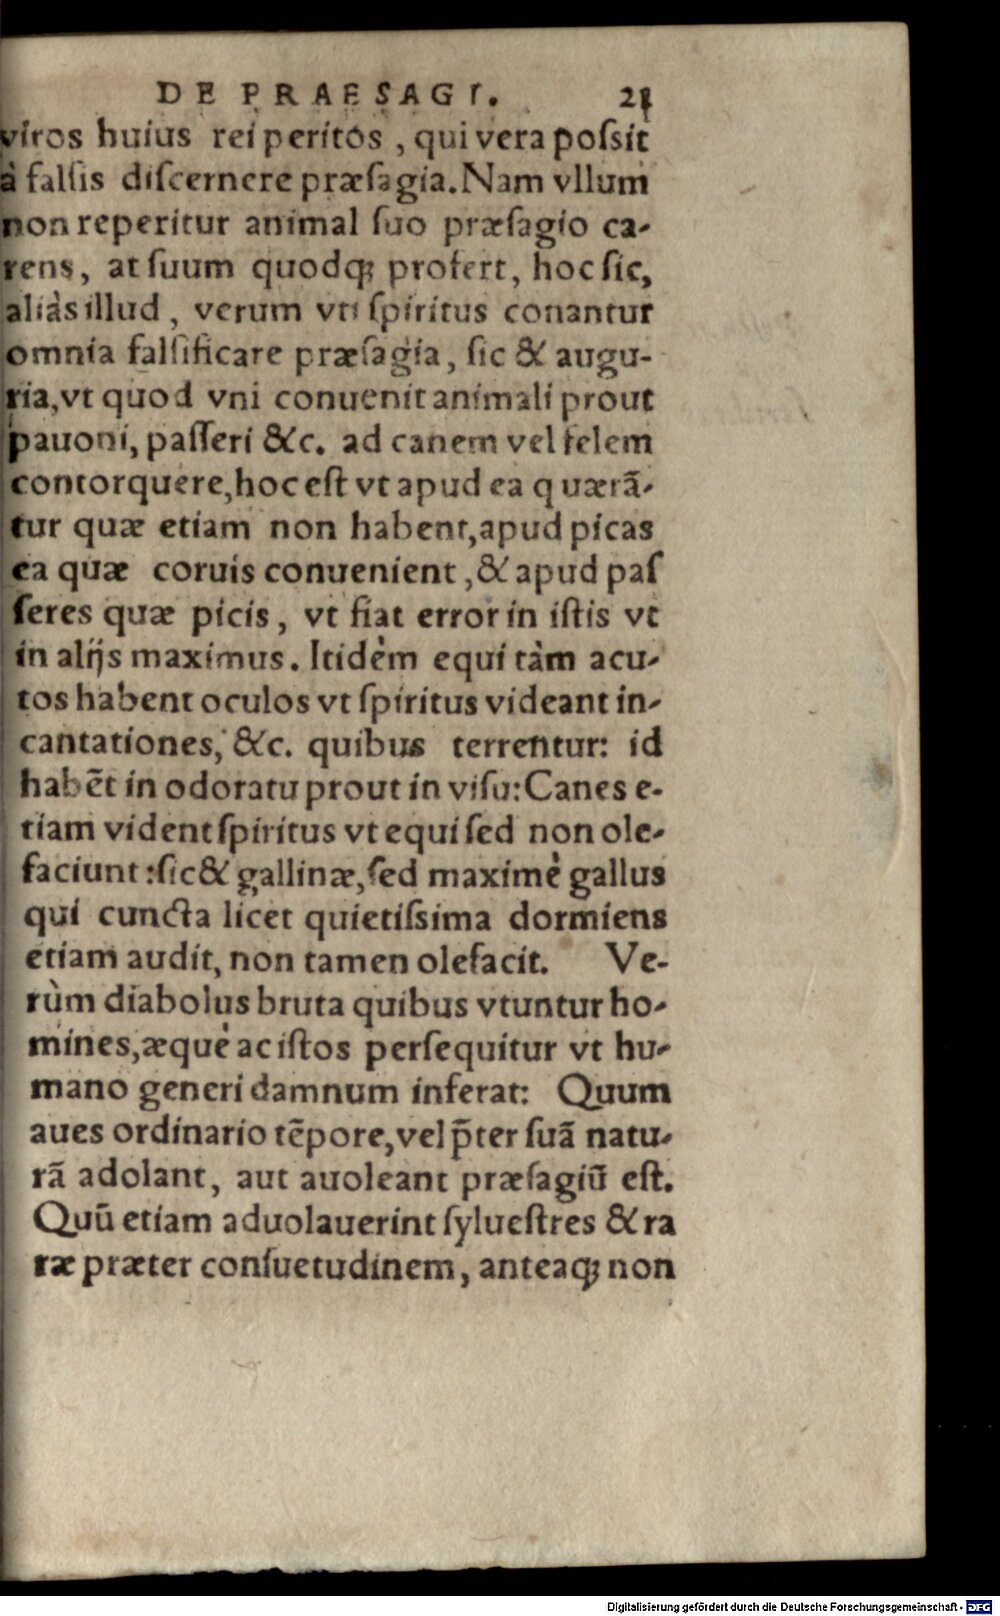 DE PRAESAGI. 21
viros huius rei peritos, qui vera poſsit
à falſis diſcernere præſagia. Nam vllum
non reperitur animal ſuo præſagio ca-
rens, at ſuum quodq; profert, hoc ſic,
aliàs illud, verum vti ſpiritus conantur
omnia falſificare præſagia, ſic & augu-
ria, vt quod vni conuenit animali prout
pauoni, paſſeri &c. ad canem vel felem
contorquere, hoc eſt vt apud ea quærã-
tur quæ etiam non habent, apud picas
ea quæ coruis conuenient, & apud paſ
ſeres quæ picis, vt fiat error in iſtis vt
in alijs maximus. Itidèm equi tàm acu-
tos habent oculos vt ſpiritus videant in-
cantationes, &c. quibus terrentur: id
habẽt in odoratu prout in viſu: Canes e-
tiam vident ſpiritus vt equi ſed non ole-
faciunt: ſic & gallinæ, ſed maximè gallus
qui cuncta licet quietiſsima dormiens
etiam audit, non tamen olefacit. Ve-
rùm diabolus bruta quibus vtuntur ho-
mines, æquè ac iſtos perſequitur vt hu-
mano generi damnum inferat: Quum
aues ordinario tẽpore, vel p̃ter ſuã natu-
rã adolant, aut auoleant præſagiũ eſt.
Quũ etiam aduolauerint ſylueſtres & ra
ræ præter conſuetudinem, anteaq; non
Digitalisierung gefördert durch die Deutsche Forschungsgemeinschaft - DFG